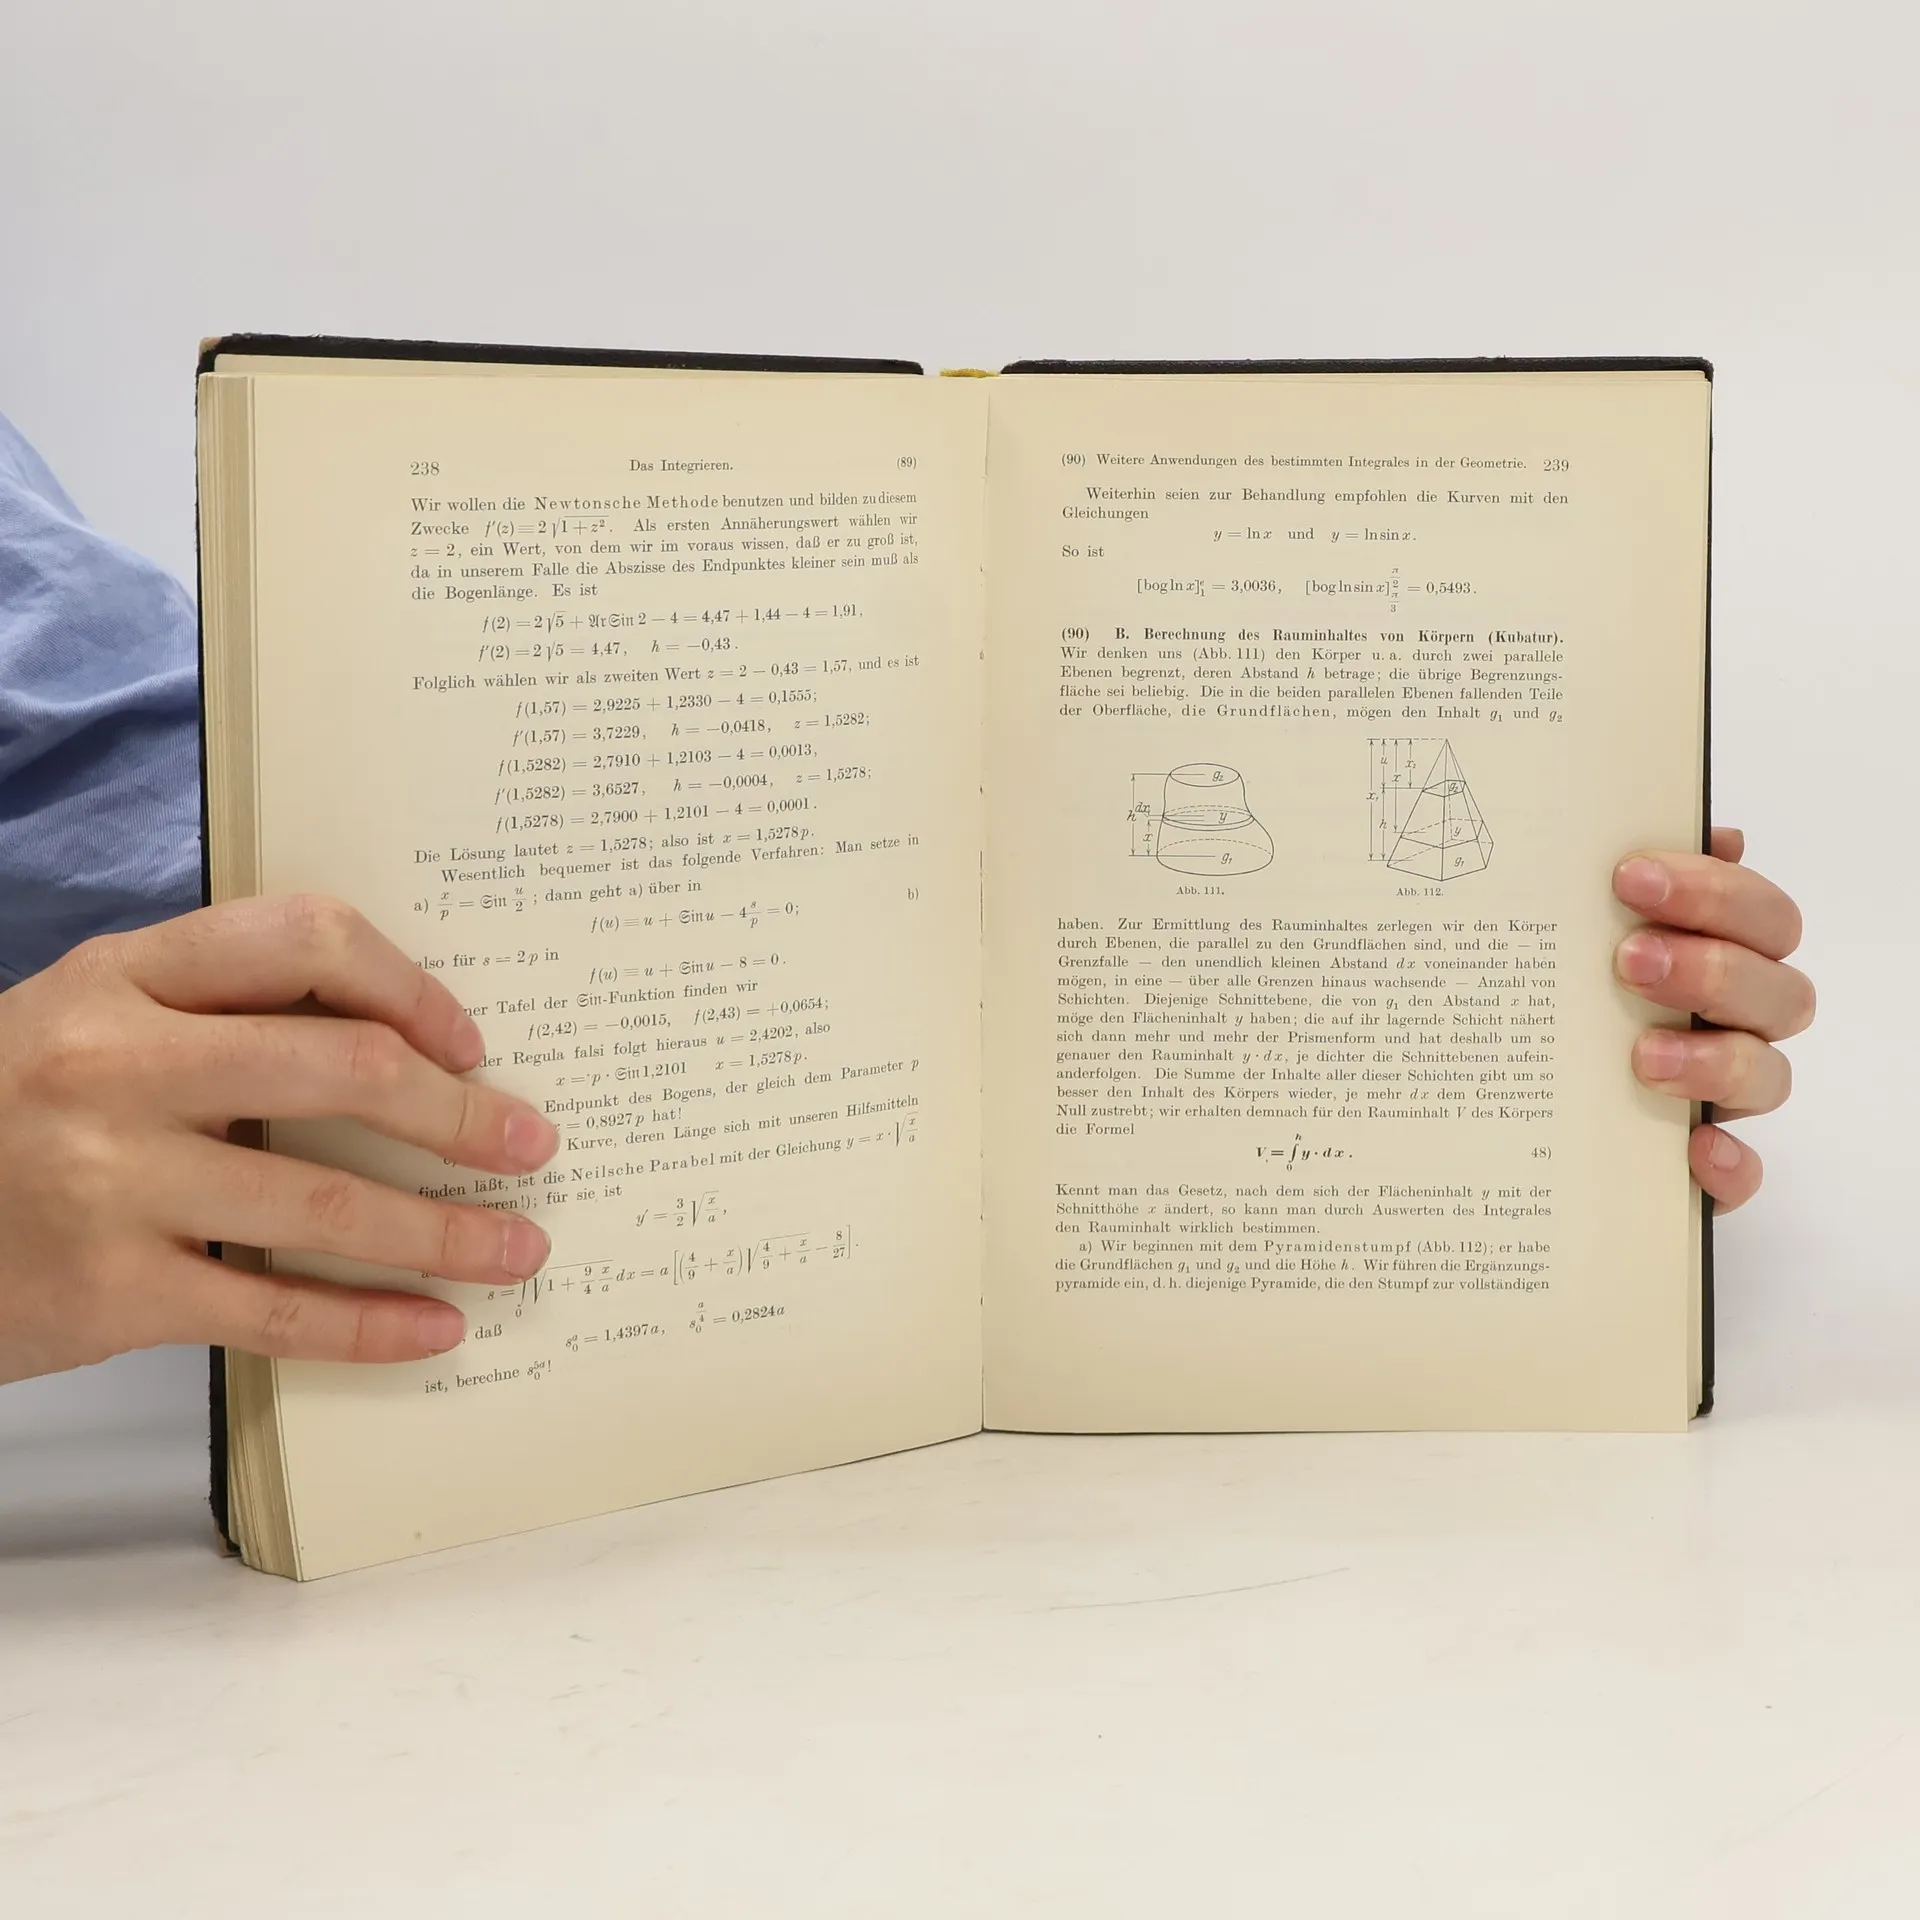 238 Das Integrieren. (89)
Wir wollen die Newtonsche Methode benutzen und bilden zu diesem
Zwecke f′(z) ≡ 2 √(1 + z²). Als ersten Annäherungswert wählen wir
z = 2, ein Wert, von dem wir im voraus wissen, daß er zu groß ist,
da in unserem Falle die Abszisse des Endpunktes kleiner sein muß als
die Bogenlänge. Es ist
f(2) = 2√5 + 𝔄𝔯 𝔖𝔦𝔫 2 − 4 = 4,47 + 1,44 − 4 = 1,91,
f′(2) = 2√5 = 4,47, h = −0,43.
Folglich wählen wir als zweiten Wert z = 2 − 0,43 = 1,57, und es ist
f(1,57) = 2,9225 + 1,2330 − 4 = 0,1555;
f′(1,57) = 3,7229, h = −0,0418, z = 1,5282;
f(1,5282) = 2,7910 + 1,2103 − 4 = 0,0013,
f′(1,5282) = 3,6527, h = −0,0004, z = 1,5278;
f(1,5278) = 2,7900 + 1,2101 − 4 = 0,0001.
Die Lösung lautet z = 1,5278; also ist x = 1,5278 p.
Wesentlich bequemer ist das folgende Verfahren: Man setze in
a) x/p = 𝔖𝔦𝔫 u/2; dann geht a) über in
f(u) ≡ u + 𝔖𝔦𝔫 u − 4 s/p = 0; b)
also für s = 2p in
f(u) ≡ u + 𝔖𝔦𝔫 u − 8 = 0.
Tafel der 𝔖𝔦𝔫-Funktion finden wir
f(2,42) = −0,0015, f(2,43) = +0,0654;
der Regula falsi folgt hieraus u = 2,4202, also
x = p · 𝔖𝔦𝔫 1,2101 x = 1,5278 p.
Endpunkt des Bogens, der gleich dem Parameter p
= 0,8927 p hat!
Kurve, deren Länge sich mit unseren Hilfsmitteln
finden läßt, ist die Neilsche Parabel mit der Gleichung y = x · √(x/a)
für sie ist
y′ = 3/2 √(x/a),
s = ∫₀ √(1 + 9/4 x/a) dx = a [(4/9 + x/a) √(4/9 + x/a) − 8/27].
daß
s₀ᵃ = 1,4397 a, s₀^(a/4) = 0,2824 a
ist, berechne s₀⁵ᵃ!
(90) Weitere Anwendungen des bestimmten Integrales in der Geometrie. 239
Weiterhin seien zur Behandlung empfohlen die Kurven mit den
Gleichungen
y = ln x und y = ln sin x.
So ist
[bog ln x]₁ᵉ = 3,0036, [bog ln sin x]_(π/3)^(π/2) = 0,5493.
(90) B. Berechnung des Rauminhaltes von Körpern (Kubatur).
Wir denken uns (Abb. 111) den Körper u. a. durch zwei parallele
Ebenen begrenzt, deren Abstand h betrage; die übrige Begrenzungs-
fläche sei beliebig. Die in die beiden parallelen Ebenen fallenden Teile
der Oberfläche, die Grundflächen, mögen den Inhalt g₁ und g₂
h dx x g₂ y g₁
Abb. 111.
x₁ u h x x₂ g₂ y g₁
Abb. 112.
haben. Zur Ermittlung des Rauminhaltes zerlegen wir den Körper
durch Ebenen, die parallel zu den Grundflächen sind, und die — im
Grenzfalle — den unendlich kleinen Abstand dx voneinander haben
mögen, in eine — über alle Grenzen hinaus wachsende — Anzahl von
Schichten. Diejenige Schnittebene, die von g₁ den Abstand x hat,
möge den Flächeninhalt y haben; die auf ihr lagernde Schicht nähert
sich dann mehr und mehr der Prismenform und hat deshalb um so
genauer den Rauminhalt y · dx, je dichter die Schnittebenen aufein-
anderfolgen. Die Summe der Inhalte aller dieser Schichten gibt um so
besser den Inhalt des Körpers wieder, je mehr dx dem Grenzwerte
Null zustrebt; wir erhalten demnach für den Rauminhalt V des Körpers
die Formel
V = ∫₀ʰ y · dx. 48)
Kennt man das Gesetz, nach dem sich der Flächeninhalt y mit der
Schnitthöhe x ändert, so kann man durch Auswerten des Integrales
den Rauminhalt wirklich bestimmen.
a) Wir beginnen mit dem Pyramidenstumpf (Abb. 112); er habe
die Grundflächen g₁ und g₂ und die Höhe h. Wir führen die Ergänzungs-
pyramide ein, d. h. diejenige Pyramide, die den Stumpf zur vollständigen